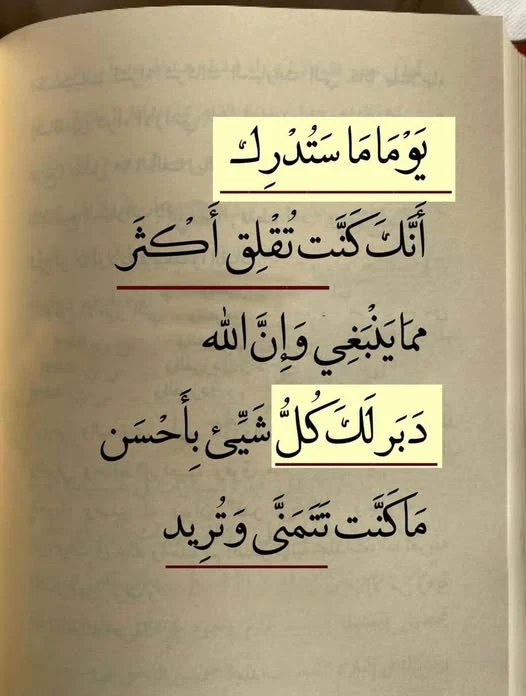 يَوْمَا مَا سَتُدْرِك
أَنَّكَ كَنَّت تُقْلِق أَكْثَر
ممَا يَنْبَغِي وَإِنَّ الله
دَبَر لَكَ كُلُّ شَيِّئ بِأَحْسَن
مَا كَنَّت تَتَمَنَّى وَتُرِيد